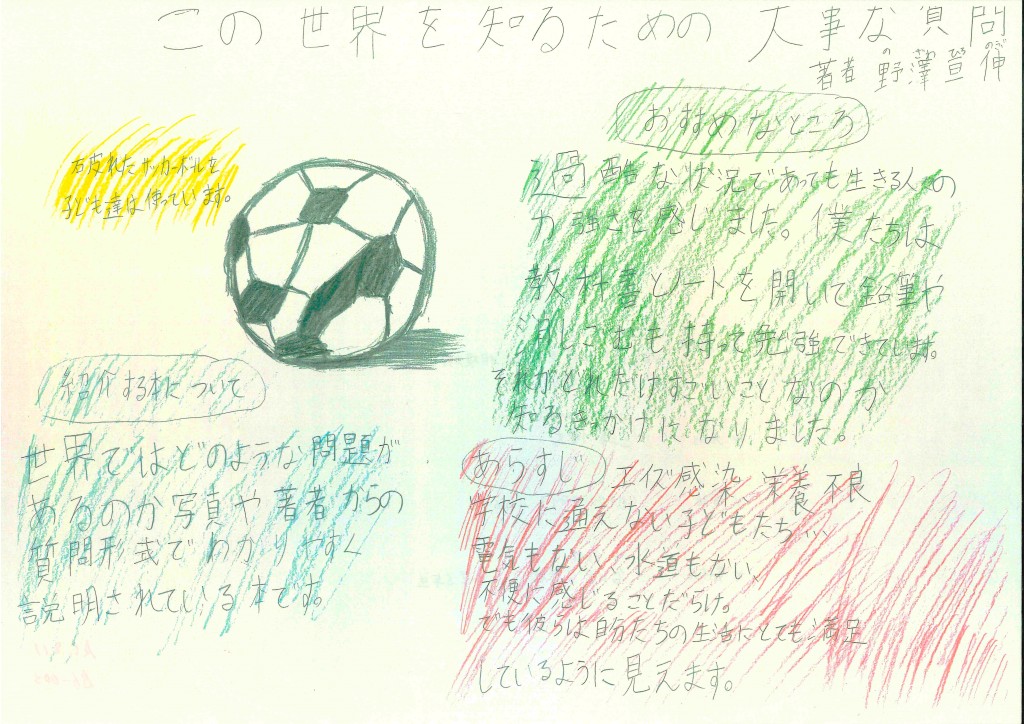 この世界を知るための大事な質問
著者 野澤亘伸
の ざわ ひろ のぶ
おすすめなところ
過酷な状況であっても生きる人の
力強さを感じました。僕たちは
教科書とノートを開いて鉛筆や
消しごむも持って勉強できています。
それがどれだけすごいことなのか
知るきかけになりました。
れたサッカーボールを
子ども達は使っています。
紹介する本について
世界ではどのような問題が
あるのか写真や著者からの
質問形式でわかりやすく
説明されている本です。
あらすじ
エイズ感染 栄養不良
学校に通えない子どもたち...
電気もない、水道もない、
不便に感じることだらけ。
でも彼らは自分たちの生活にとても満足
しているように見えます。